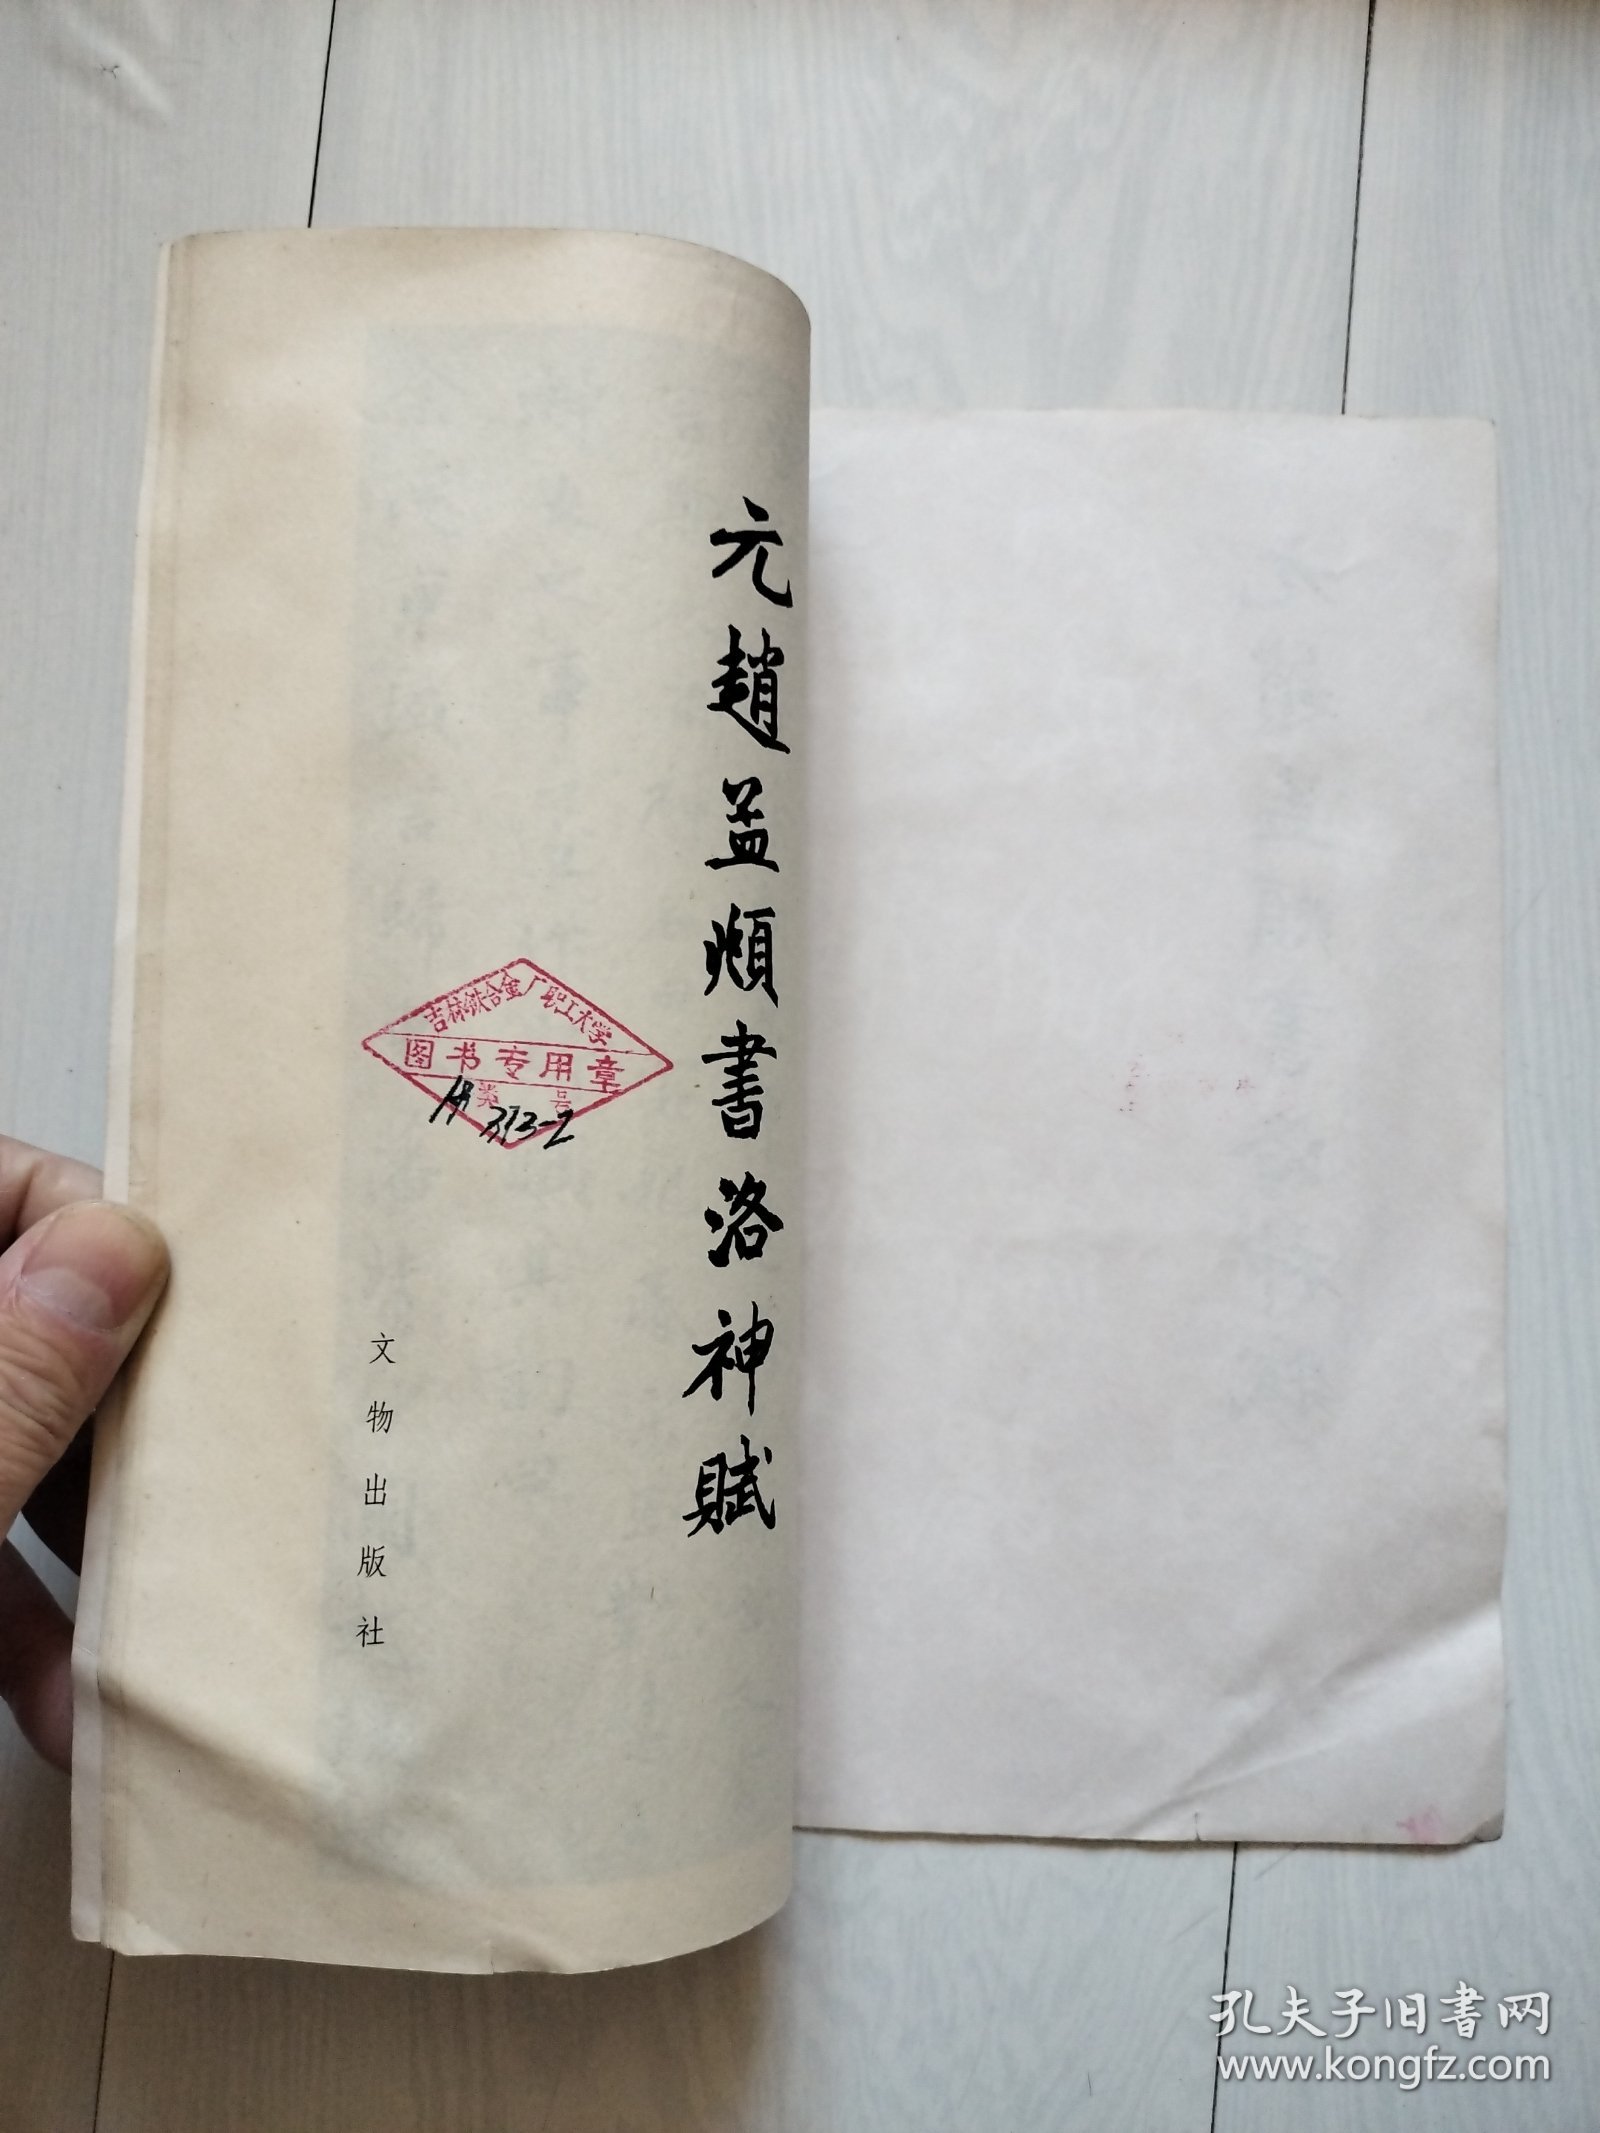 元趙孟頫書洛神賦
吉林铁合金厂职工大学
图书专用章
类 号
313-2
文物出版社
孔夫子旧书网
www.kongfz.com